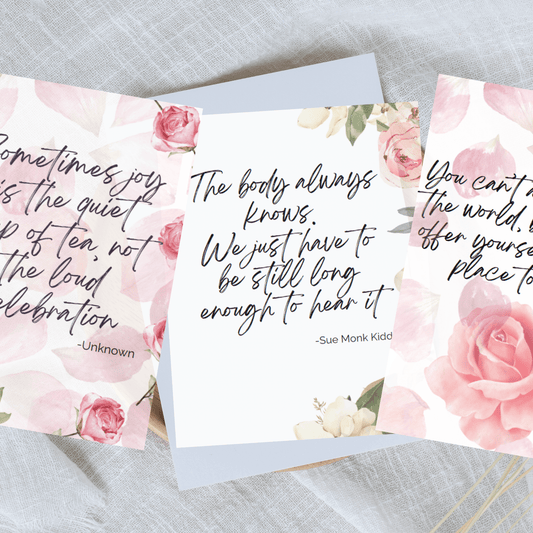 Sometimes joy
is the quiet
of tea, not
the loud
celebration
-Unknown
The body always
knows.
We just have to
be still long
enough to hear it
-Sue Monk Kidd
You can't
the world,
offer
place to